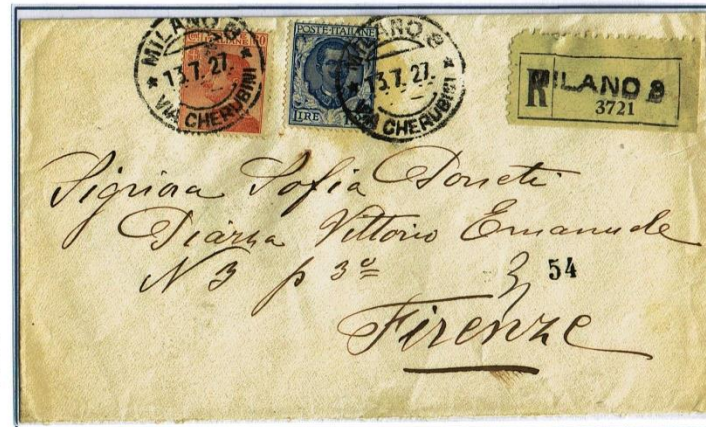 MILANO 8
13.7.27.
VIA CHERUBINI
POSTE ITALIANE
LIRE
MILANO 8
13.7.27.
VIA CHERUBINI
R MILANO 8
3721
Signora Sofia Donati
Piazza Vittorio Emanuele
N 3 p 3º
54
Firenze